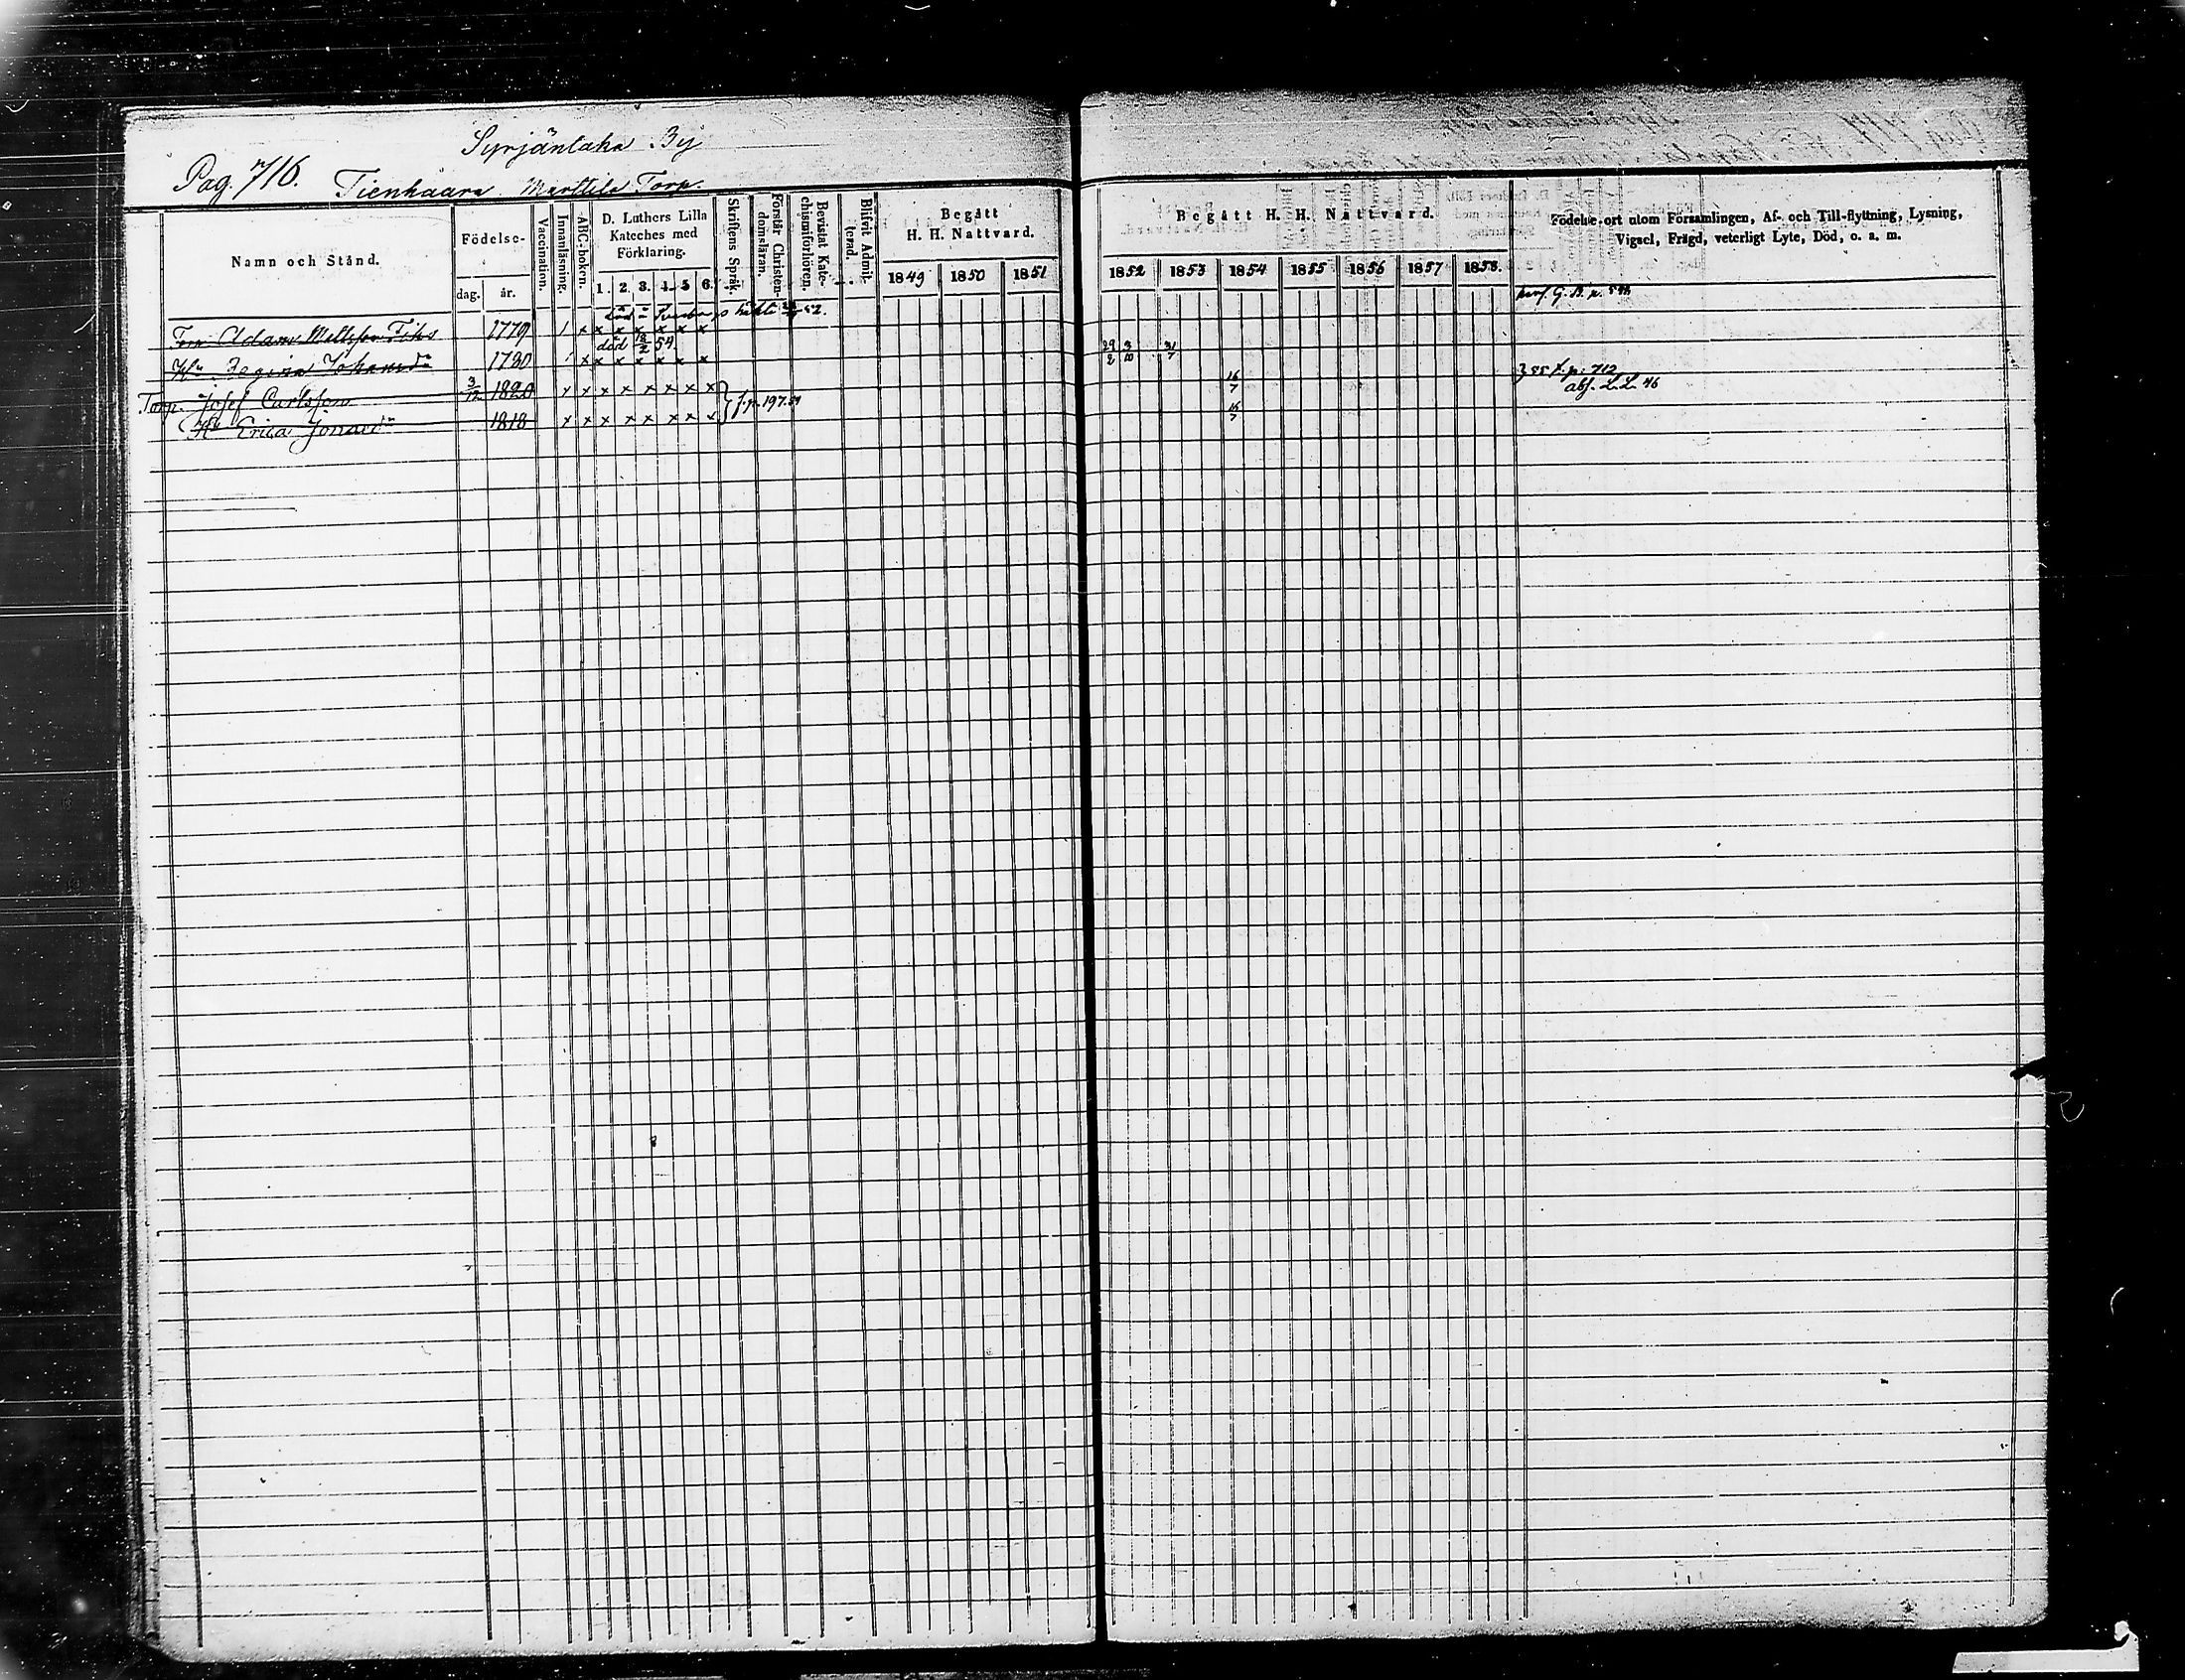 Syrjäntaka By
Pag. 716. Tienhaara Marttila Torp.
Namn och Stånd.
Födelse-
dag. år.
Vaccination.
Innanläsning.
ABC-boken.
D. Luthers Lilla Kateches med Förklaring.
1. 2. 3. 4. 5 6.
Skriftens Språk.
Förstår Christendomsläran.
Bevistat Katechismiförhören.
Blifvit Admitterad.
Begått H. H. Nattvard.
1849 1850 1851
Begått H. H. Nattvard.
1852 1853 1854 1855 1856 1857 1858.
Födelse-ort utom Församlingen, Af- och Till-flyttning, Lysning, Vigsel, Frägd, veterligt Lyte, Död, o. s. m.
Adam 1779 / x x x x x x x
död 18/2 54
Hu Regina Johansdr 1780 x x x x x x x 29/2 3/10 31/7
Torp. Josef Carlsson 3/12 1820 x x x x x x x x 16/7 55 f. p. 712
abs. L.L. 46
Hu Erica Jönsdr 1818 x x x x x x x x f. p. 197. 16/7